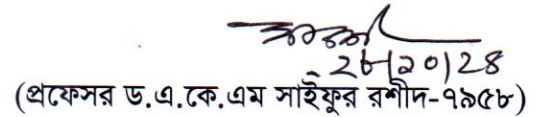 ২৮|১০|২৪
(প্রফেসর ড.এ.কে.এম সাইফুর রশীদ-৭৯৫৮)